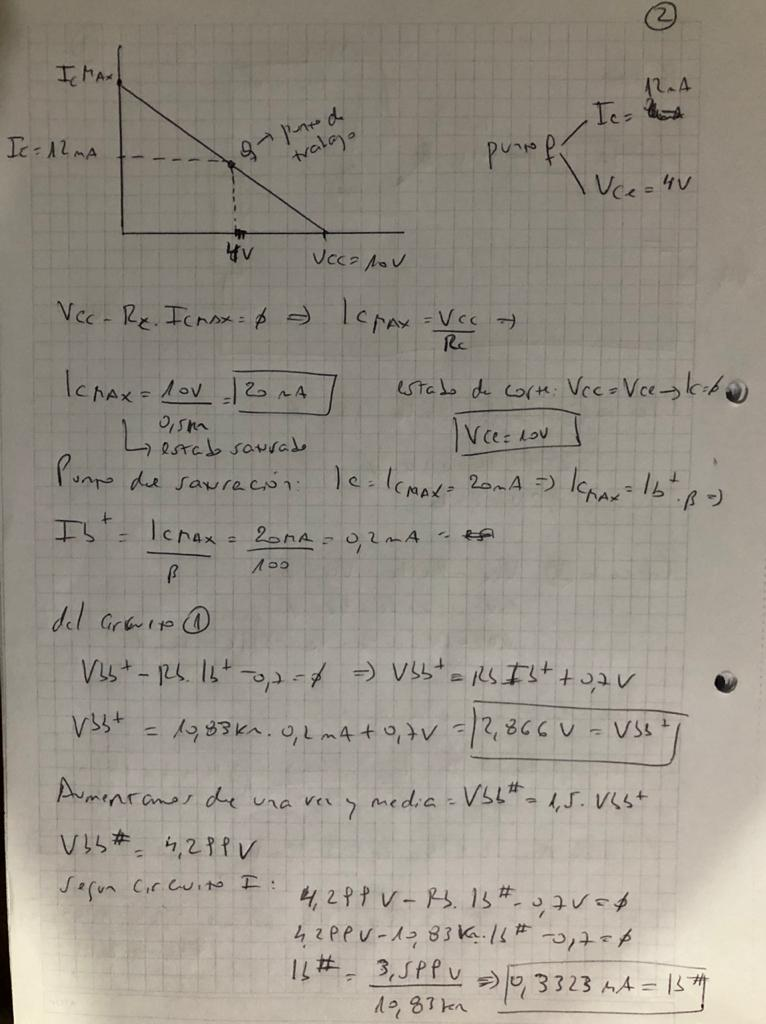 2
Ic MAX
Ic = 12 mA
Q → punto de trabajo
4V
VCC = 10V
punto f
Ic = 12 mA
VCe = 4V
VCC - Rc. ICMAX = ø ⇒ ICMAX = VCC/Rc ⇒
ICMAX = 10V/0,5kΩ = 20 mA
estado de corte: VCC = VCe → Ic = ø
↳ estado saturado
VCe = 10V
Punto de saturación: Ic = ICMAX = 20mA ⇒ ICMAX = Ib⁺.β ⇒
Ib⁺ = ICMAX/β = 20mA/100 = 0,2mA
del circuito 1
Vbb⁺ - Rb. Ib⁺ - 0,7 = ø ⇒ Vbb⁺ = Rb Ib⁺ + 0,7V
Vbb⁺ = 10,83kΩ. 0,2mA + 0,7V = 2,866 V = Vbb⁺
Aumentamos de una vez y media = Vbb# = 1,5. Vbb⁺
Vbb# = 4,299 V
Segun circuito I:
4,299 V - Rb. Ib# - 0,7V = ø
4,299V - 10,83kΩ. Ib# - 0,7 = ø
Ib# = 3,599 V/10,83kΩ ⇒ 0,3323 mA = Ib#